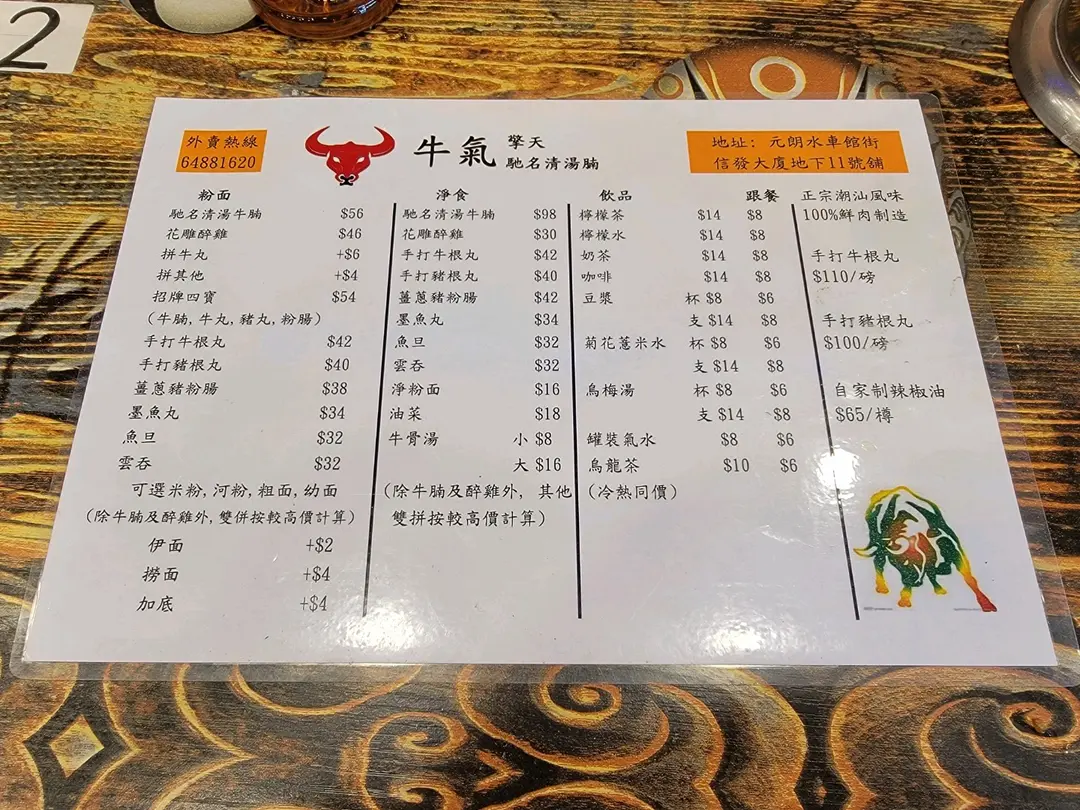 2
外賣熱線
64881620
牛氣 擎天
馳名清湯腩
地址：元朗水車館街
信發大廈地下11號舖
粉面
馳名清湯牛腩 $56
花雕醉雞 $46
拼牛丸 +$6
拼其他 +$4
招牌四寶 $54
（牛腩, 牛丸, 豬丸, 粉腸）
手打牛根丸 $42
手打豬根丸 $40
薑蔥豬粉腸 $38
墨魚丸 $34
魚旦 $32
雲吞 $32
可選米粉, 河粉, 粗面, 幼面
（除牛腩及醉雞外, 雙併按較高價計算）
伊面 +$2
撈面 +$4
加底 +$4
淨食
馳名清湯牛腩 $98
花雕醉雞 $30
手打牛根丸 $42
手打豬根丸 $40
薑蔥豬粉腸 $42
墨魚丸 $34
魚旦 $32
雲吞 $32
淨粉面 $16
油菜 $18
牛骨湯 小 $8
大 $16
（除牛腩及醉雞外, 其他
雙拼按較高價計算）
飲品 跟餐
檸檬茶 $14 $8
檸檬水 $14 $8
奶茶 $14 $8
咖啡 $14 $8
豆漿 杯 $8 $6
支 $14 $8
菊花薏米水 杯 $8 $6
支 $14 $8
烏梅湯 杯 $8 $6
支 $14 $8
罐裝氣水 $8 $6
烏龍茶 $10 $6
（冷熱同價）
正宗潮汕風味
100%鮮肉制造
手打牛根丸
$110/磅
手打豬根丸
$100/磅
自家制辣椒油
$65/樽